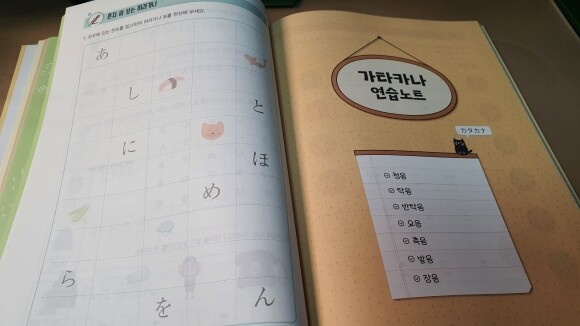 혼자 써 보는 히라가나
あ
し
と
に
ほ
め
ら
を
ん
가타카나
연습노트
カタカナ
청음
탁음
반탁음
요음
촉음
발음
장음